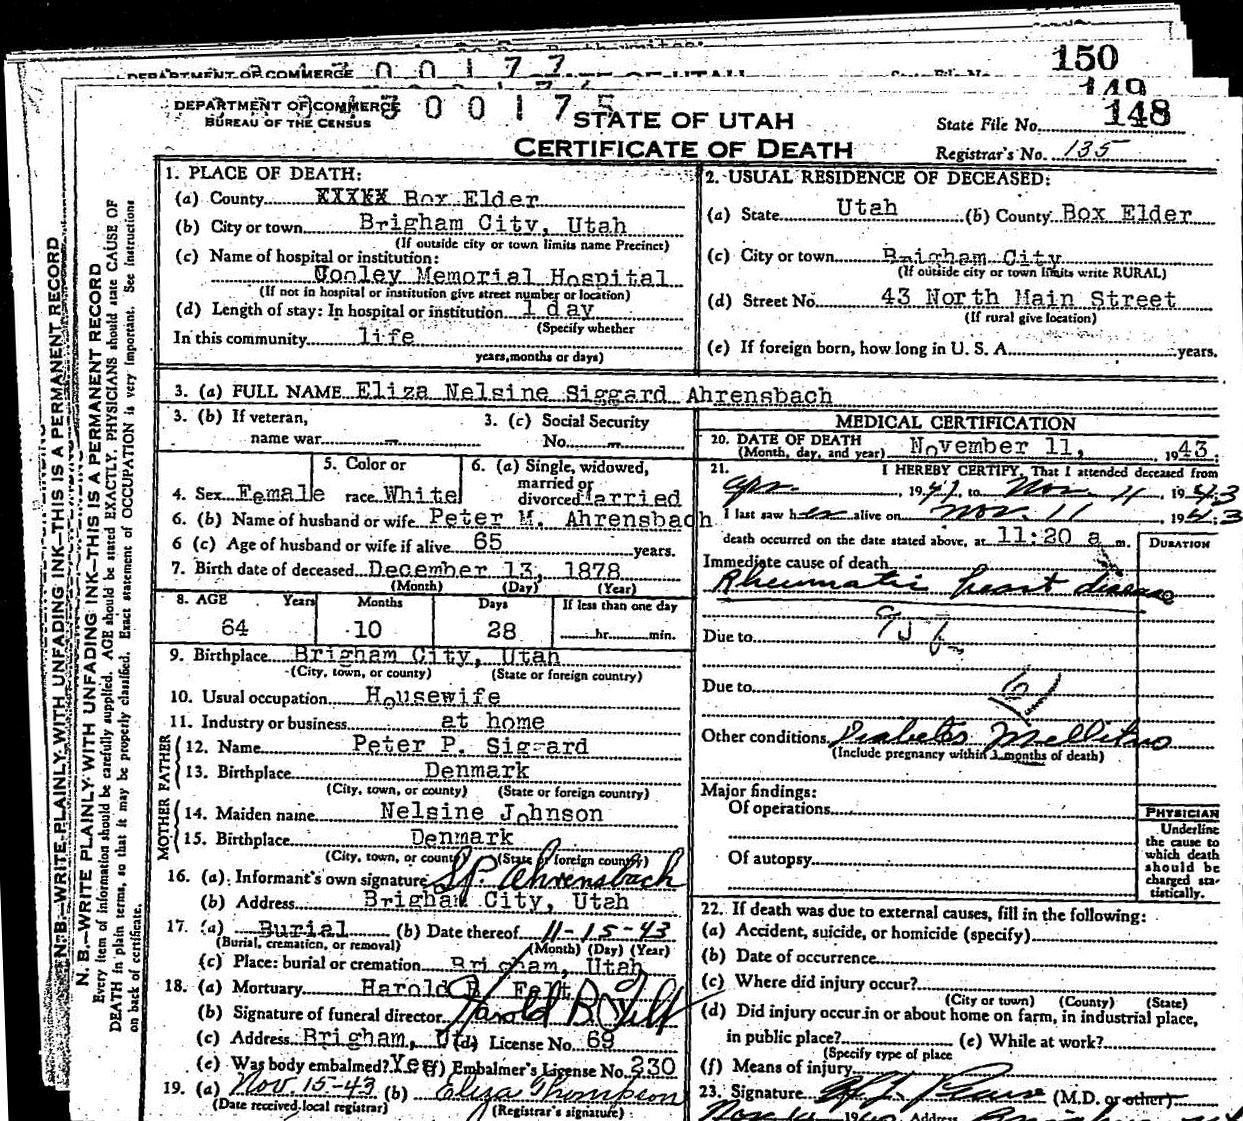 150
DEPARTMENT OF COMMERCE 0 0 1 7 7 OF UTAH
149
148
DEPARTMENT OF COMMERCE 3 0 0 1 7 5
BUREAU OF THE CENSUS
STATE OF UTAH
CERTIFICATE OF DEATH
State File No.
Registrar's No. 135
N. B.—WRITE PLAINLY WITH UNFADING INK—THIS IS A PERMANENT RECORD
N. B.—WRITE PLAINLY WITH UNFADING INK—THIS IS A PERMANENT RECORD
Every item of information should be carefully supplied. AGE should be stated EXACTLY. PHYSICIANS should state CAUSE OF
DEATH in plain terms, so that it may be properly classified. Exact statement of OCCUPATION is very important. See instructions
on back of certificate.
1. PLACE OF DEATH:
(a) County XXXXX Box Elder
(b) City or town Brigham City, Utah
(If outside city or town limits name Precinct)
(c) Name of hospital or institution:
Cooley Memorial Hospital
(If not in hospital or institution give street number or location)
(d) Length of stay: In hospital or institution 1 day
(Specify whether
In this community life
years, months or days)
2. USUAL RESIDENCE OF DECEASED:
(a) State Utah (b) County Box Elder
(c) City or town Brigham City
(If outside city or town limits write RURAL)
(d) Street No. 43 North Main Street
(If rural give location)
(e) If foreign born, how long in U. S. A. years.
3. (a) FULL NAME Eliza Nelsine Siggard Ahrensbach
3. (b) If veteran,
name war —
3. (c) Social Security
No. —
4. Sex Female
5. Color or
race White
6. (a) Single, widowed,
married or
divorced Married
6. (b) Name of husband or wife Peter M. Ahrensbach
6 (c) Age of husband or wife if alive 65 years.
7. Birth date of deceased December 13, 1878
(Month) (Day) (Year)
8. AGE Years Months Days If less than one day
64 10 28 hr. min.
9. Birthplace Brigham City, Utah
(City, town, or county) (State or foreign country)
10. Usual occupation Housewife
11. Industry or business at home
FATHER
12. Name Peter P. Siggard
13. Birthplace Denmark
(City, town, or county) (State or foreign country)
MOTHER
14. Maiden name Nelsine Johnson
15. Birthplace Denmark
(City, town, or county) (State or foreign country)
16. (a) Informant's own signature Ahrensbach
(b) Address Brigham City, Utah
17. (a) Burial (b) Date thereof 11-15-43
(Burial, cremation, or removal) (Month) (Day) (Year)
(c) Place: burial or cremation Brigham, Utah
18. (a) Mortuary Harold B. Felt
(b) Signature of funeral director Harold B Felt
(c) Address Brigham, Ut (d) License No. 69
(e) Was body embalmed? Yes (f) Embalmer's License No. 230
19. (a) Nov. 15-43 (b) Eliza Thompson
(Date received local registrar) (Registrar's signature)
MEDICAL CERTIFICATION
20. DATE OF DEATH
(Month, day, and year) November 11, 1943.
21. I HEREBY CERTIFY, That I attended deceased from
Apr. , 1941, to Nov. 11, 1943
I last saw her alive on Nov. 11 1943
death occurred on the date stated above, at 11:20 a m.
DURATION
Immediate cause of death
Rheumatic heart disease
Due to
Due to
Other conditions Diabetes Mellitus
(Include pregnancy within 3 months of death)
Major findings:
Of operations
Of autopsy
PHYSICIAN
Underline
the cause to
which death
should be
charged sta-
tistically.
22. If death was due to external causes, fill in the following:
(a) Accident, suicide, or homicide (specify)
(b) Date of occurrence
(c) Where did injury occur?
(City or town) (County) (State)
(d) Did injury occur in or about home on farm, in industrial place,
in public place? (e) While at work?
(Specify type of place
(f) Means of injury
23. Signature (M.D. or other)
Address